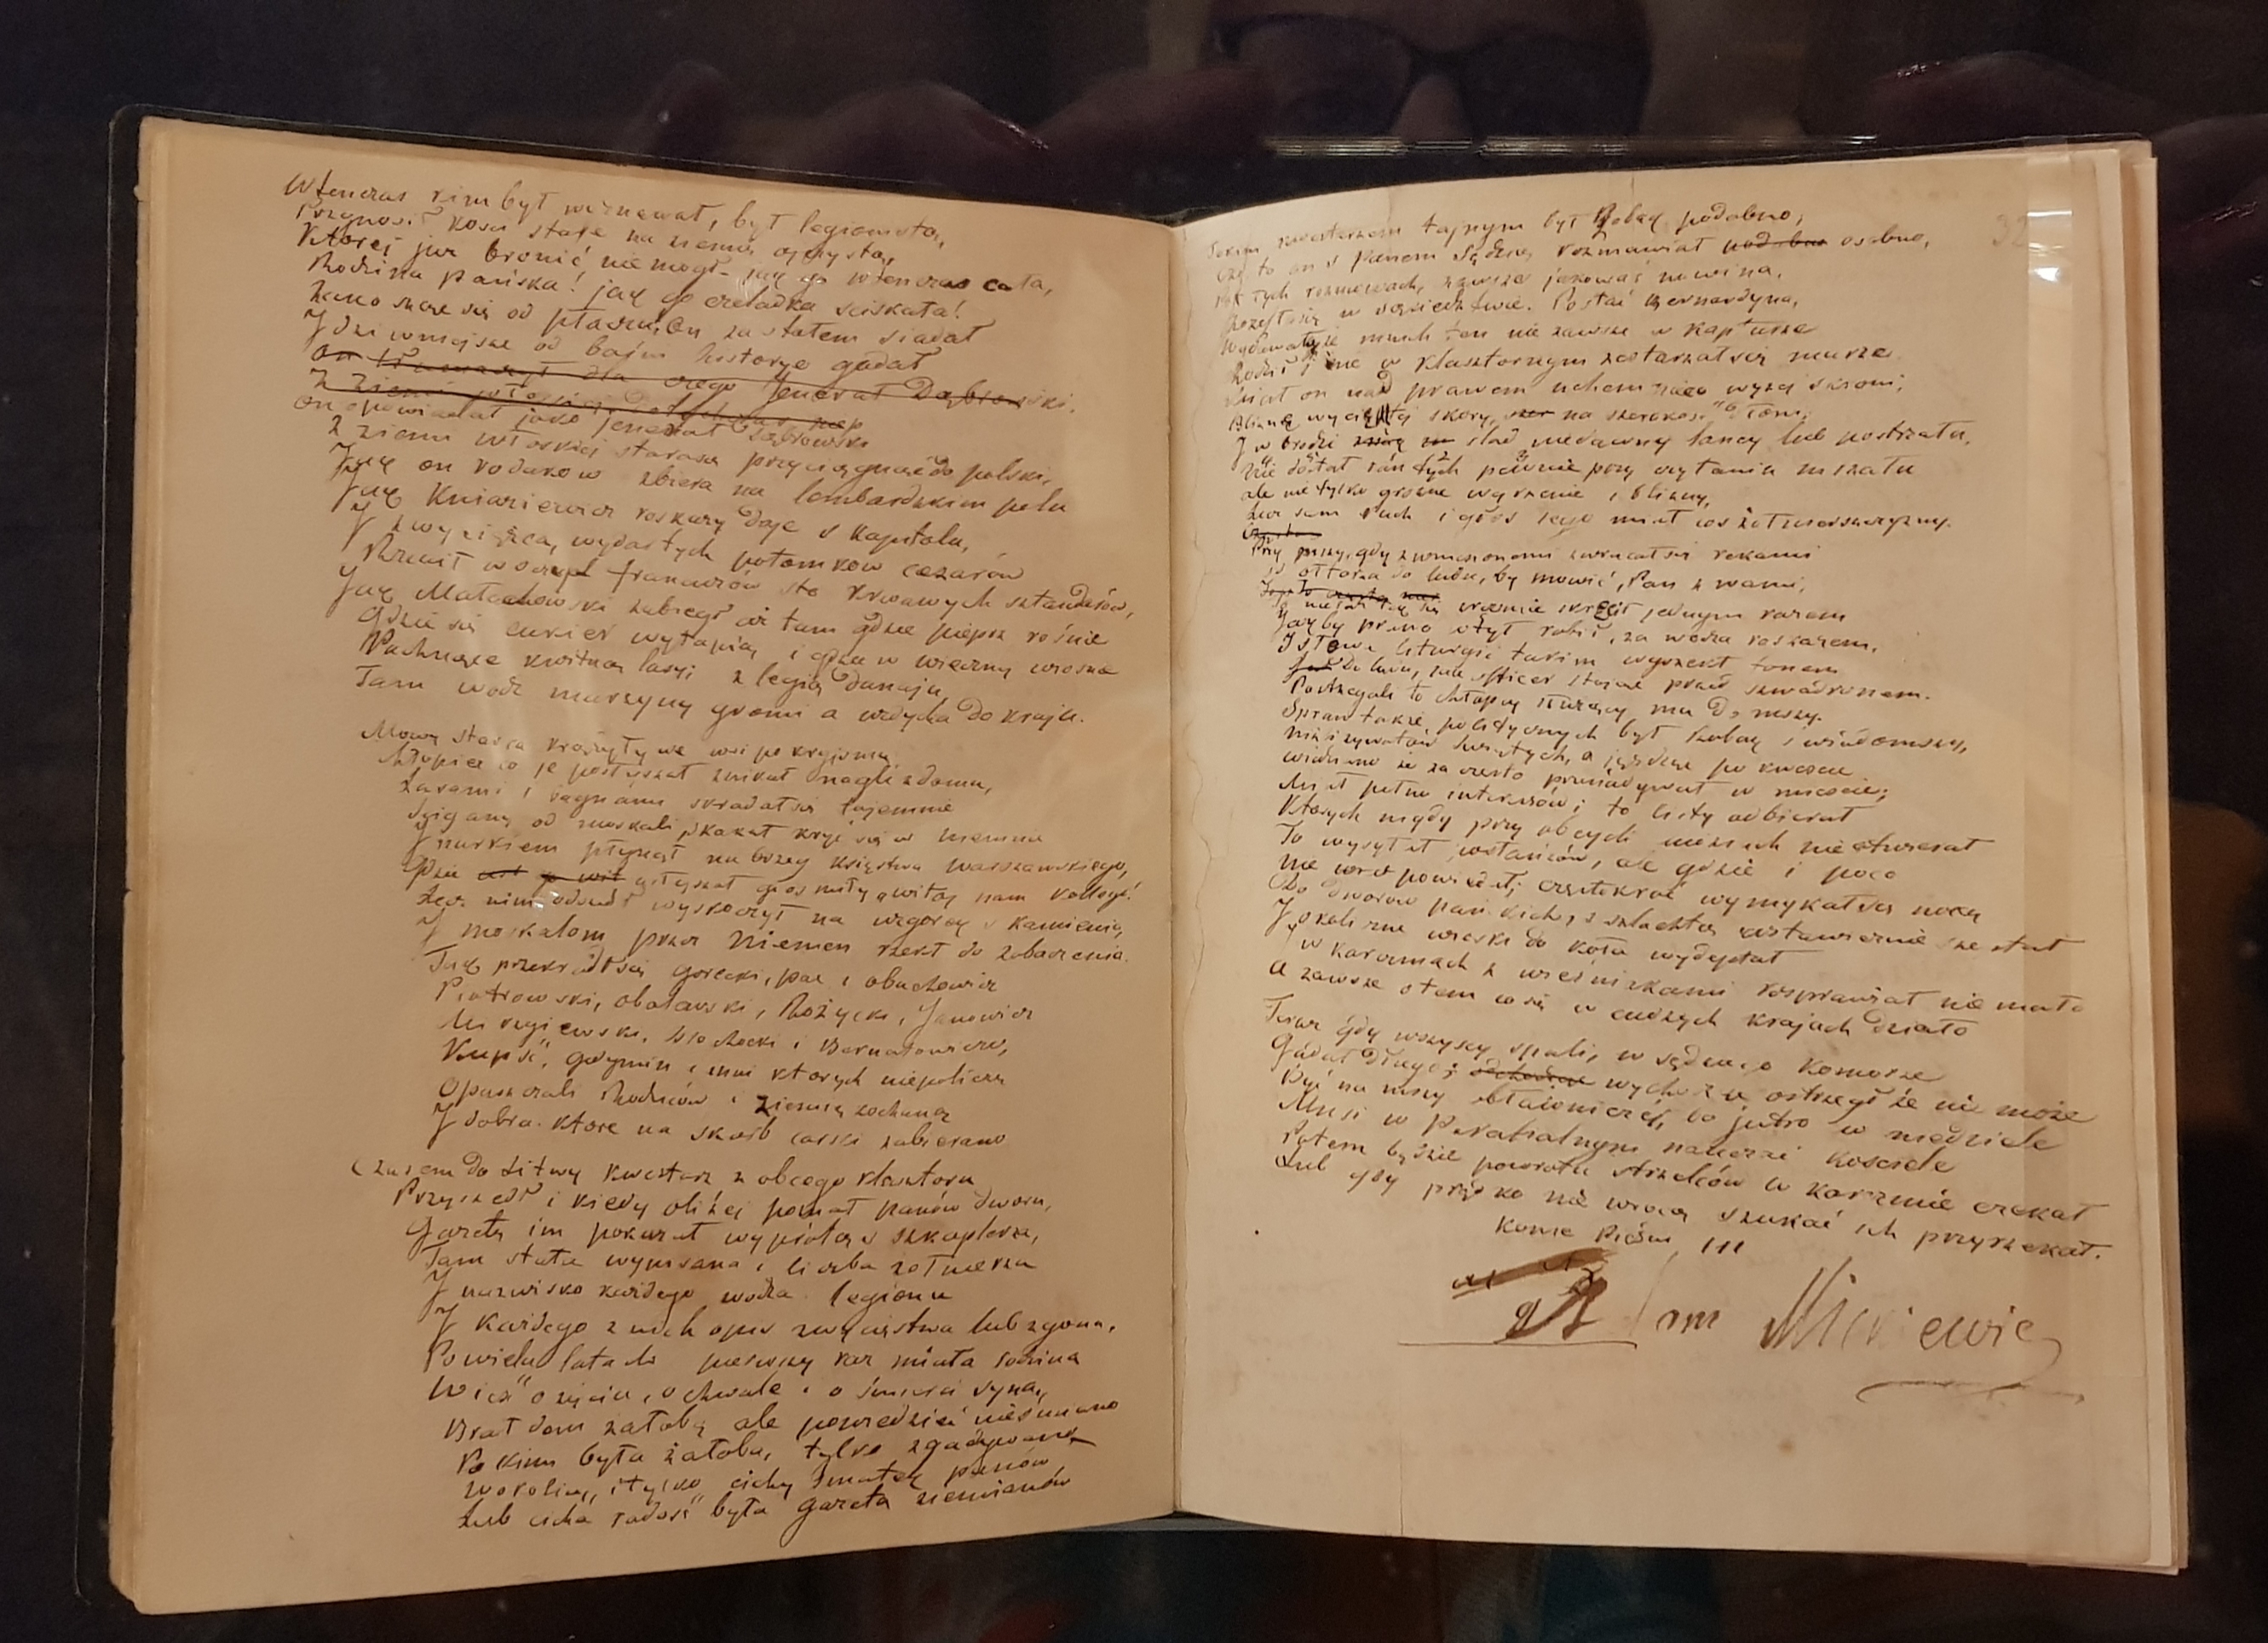 Wtenczas kim był wyznawał, był legionistą,
Przynosił kości stare na ziemię ojczystą,
Ktorej już bronić nie mogł - jak go wtenczas cała,
Rodzina pańska! jak go czeladka sciskała!
Zanosząc się od płaczu! On za stołem siadał
I dziwniejsze od bajm historye gadał
On tłumaczył dla czego Jenerał Dąbrowski.
Z ziemi włoskiej
On opowiadał jako jenerał Dąbrowski
Z ziemi włoskiej stara się przyciągnąć do polski,
Jak on rodakow zbiera na lombardzkim polu
Jak Kniaziewicz roskazy daje s kapitolu,
I zwycięsca, wydartych potomkow cezarów
Rzucił w oczy francuzów sto krwawych sztandarów,
Jak Małachowski zabiegł aż tam gdzie pieprz rośnie
Gdzie się cukier wytapia, i gdzie w wieczny wiosnie
Pachnące kwitną lasy; z legią dunaju
Tam wodz murzyny gromi a wzdycha do kraju.
Mowy starca krążyły we wsi po kryjomu
Chłopiec co je posłyszał znikał nagle z domu,
Lasami i bagnami skradał się tajemnie
Scigany od moskali, skakał kryć się w niemnie
I nurkiem płynął na brzeg księstwa warszawskiego,
Gdzie usłyszał głos miły, witaj nam kollego!
Lecz nim odszedł wyskoczył na wzgorek s kamienia,
I moskalom przez Niemen rzekł do zobaczenia.
Tak przekradł się gorecki, pac i obuchowicz
Piotrowski, obolewski, Rożycki, Janowicz
Mirzejewski, brochocki i Bernatowicze,
Kupść, gedymin i inni ktorych niepoliczę
Opuszczali Rodziców i ziemię kochaną
I dobra ktore na skarb carski zabierano
Czasem do Litwy kwestarz z obcego klasztoru
Przyszedł i kiedy bliżej poznał panów dworu,
Gazetę im pokazał wyprótą s szkaplerza,
Tam stała wypisana i liczba żołnierza
I nazwisko każdego wodza legionu
I każdego z nich opis zwycięstwa lub zgonu.
Po wielu latach pierwszy raz miała rodzina
Wieść o życiu, o chwale i o śmierci syna,
Brał dom żałobę ale powiedzieć nieśmiano
Po kim była żałoba, tylko zgadywano
W okolicy, i tylko cichy smutek panów
Lub cicha radość była gazetą ziemianów
Takim kwestarzem tajnym był Robak podobno,
Często on s panem Sędzią rozmawiał podobno osobno,
Po tych rozmowach, zawsze jakowaś nowina,
Rozeszła się w sąsiedztwie. Postać Bernardyna,
Wydawała że mnich ten nie zawsze w kapturze
Chodził i nie w klasztornym zestarzał się murze.
Miał on nad prawem uchem nieco wyzej skroni,
Bliznę wyciętej skory, na szerokość dłoni,
I w brodzie slad niedawny lancy lub postrzału,
Nie dostał ran tych pewnie przy czytaniu mszału
ale nie tylko grozne wejrzenie i blizny,
Lecz sam ruch i głos jego miał cos żołnierszczyzny.
Przy mszy, gdy z wzniesionemi zwracał się rękami
Od ołtarza do ludu, by mowić, Pan z wami,
To nieraz tak się zręcznie skręcił jednym razem
Jakby prawo w tył robił, za wodza roskazem,
I słowa liturgii takim wyrzekł tonem
Do ludu, jak officer stojąc przed szwadronem.
Postrzegali to chłopcy służący mu do mszy.
Spraw takze politycznych był Robak swiadomszy,
Niż żywotów świętych, a jeżdżąc po kwescie
widziano że za często przesiadywał w miescie;
Miał pełno interesów; to listy odbierał
Ktorych nigdy przy obcych ludziach nie otwierał
To wysyłał posłańców, ale gdzie i poco
Nie wod powiedał; częstokroć wymykał się nocą
Do dworow pańskich, s szlachtą ustawicznie szeptał
I okoliczne wioski do koła wydeptał
w karczmach z wieśniakami rosprawiał nie mało
A zawsze o tem co się w cudzych krajach działo
Teraz gdy wszyscy spali, w sędziego komorze
Gadał długo; wychodząc ostrzegł że nie może
Być na mszy obłażonicznej, bo jutro w niedziele
Musi w Parafialnym kosciele
Potem będzie powrotu strzelców w karczmie czekał
Lub gdy prędko nie wrocą szukać ich przyrzekał.
Koniec Pieśni III
Adam Mickiewicz